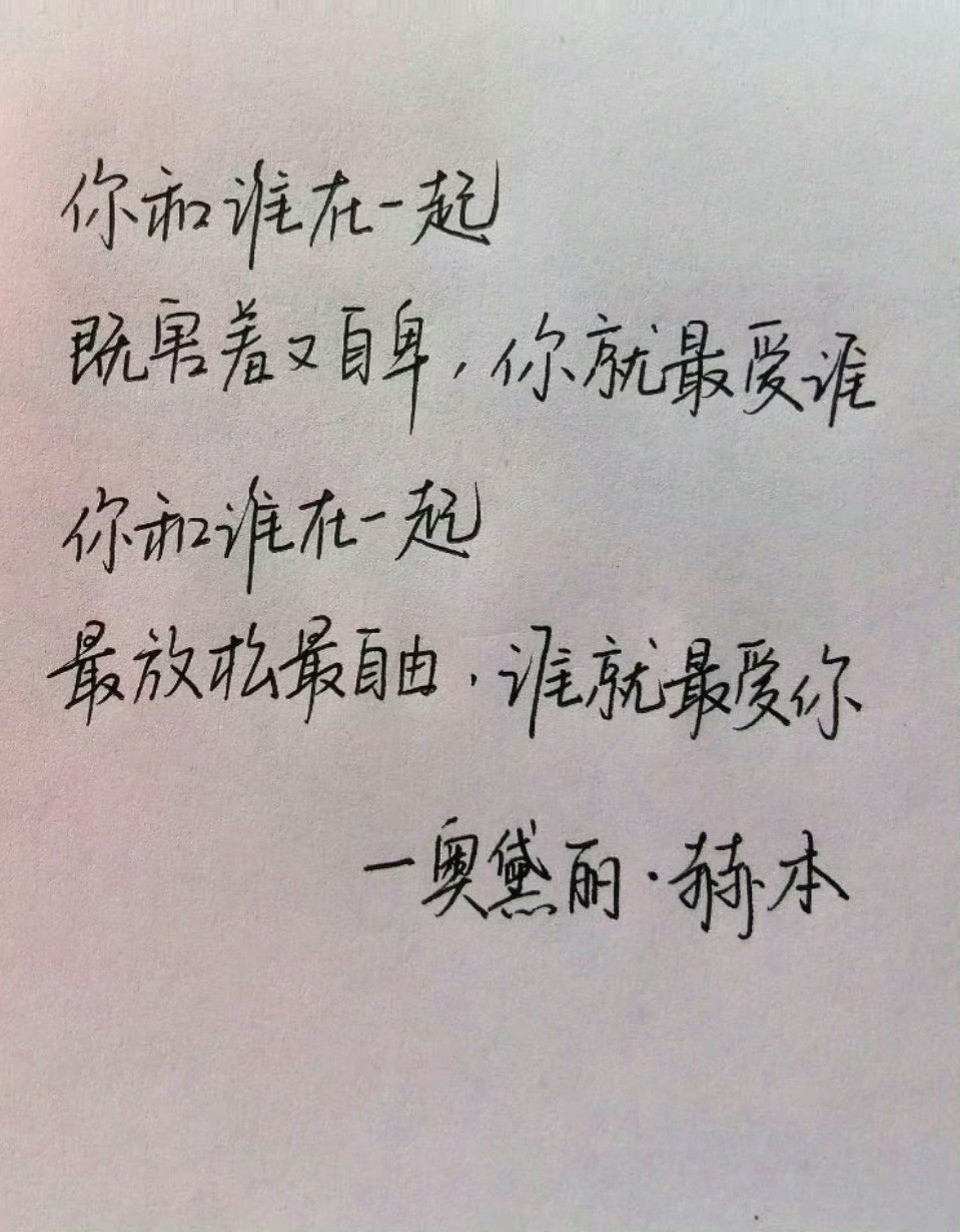 你和谁在一起
既害着又自卑，你就最爱谁
你和谁在一起
最放松最自由，谁就最爱你
—奥黛丽·赫本